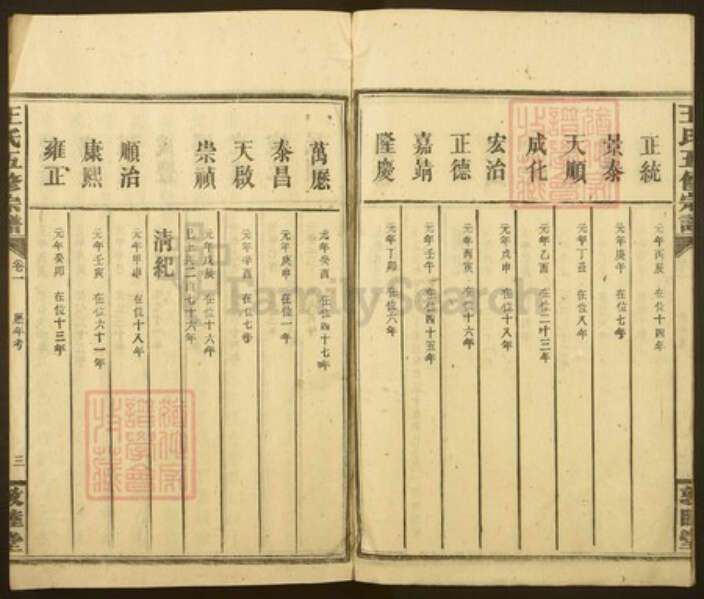 王氏五修宗譜
正統
元年丙辰 在位十四年
景泰
元年庚午 在位七年
天順
元年丁丑 在位八年
成化
元年乙酉 在位二十三年
宏治
元年戊申 在位十八年
正德
元年丙寅 在位十六年
嘉靖
元年壬午 在位四十五年
隆慶
元年丁卯 在位六年
萬歷
元年癸酉 在位四十七年
泰昌
元年庚申 在位一年
天啟
元年辛酉 在位七年
崇禎
元年戊辰 在位十六年
已上共二百七十六年
清紀
順治
元年甲申 在位十八年
康熙
元年壬寅 在位六十一年
雍正
元年癸卯 在位十三年
王氏五修宗譜
卷一
歷年考
三
敦睦堂
FamilySearch